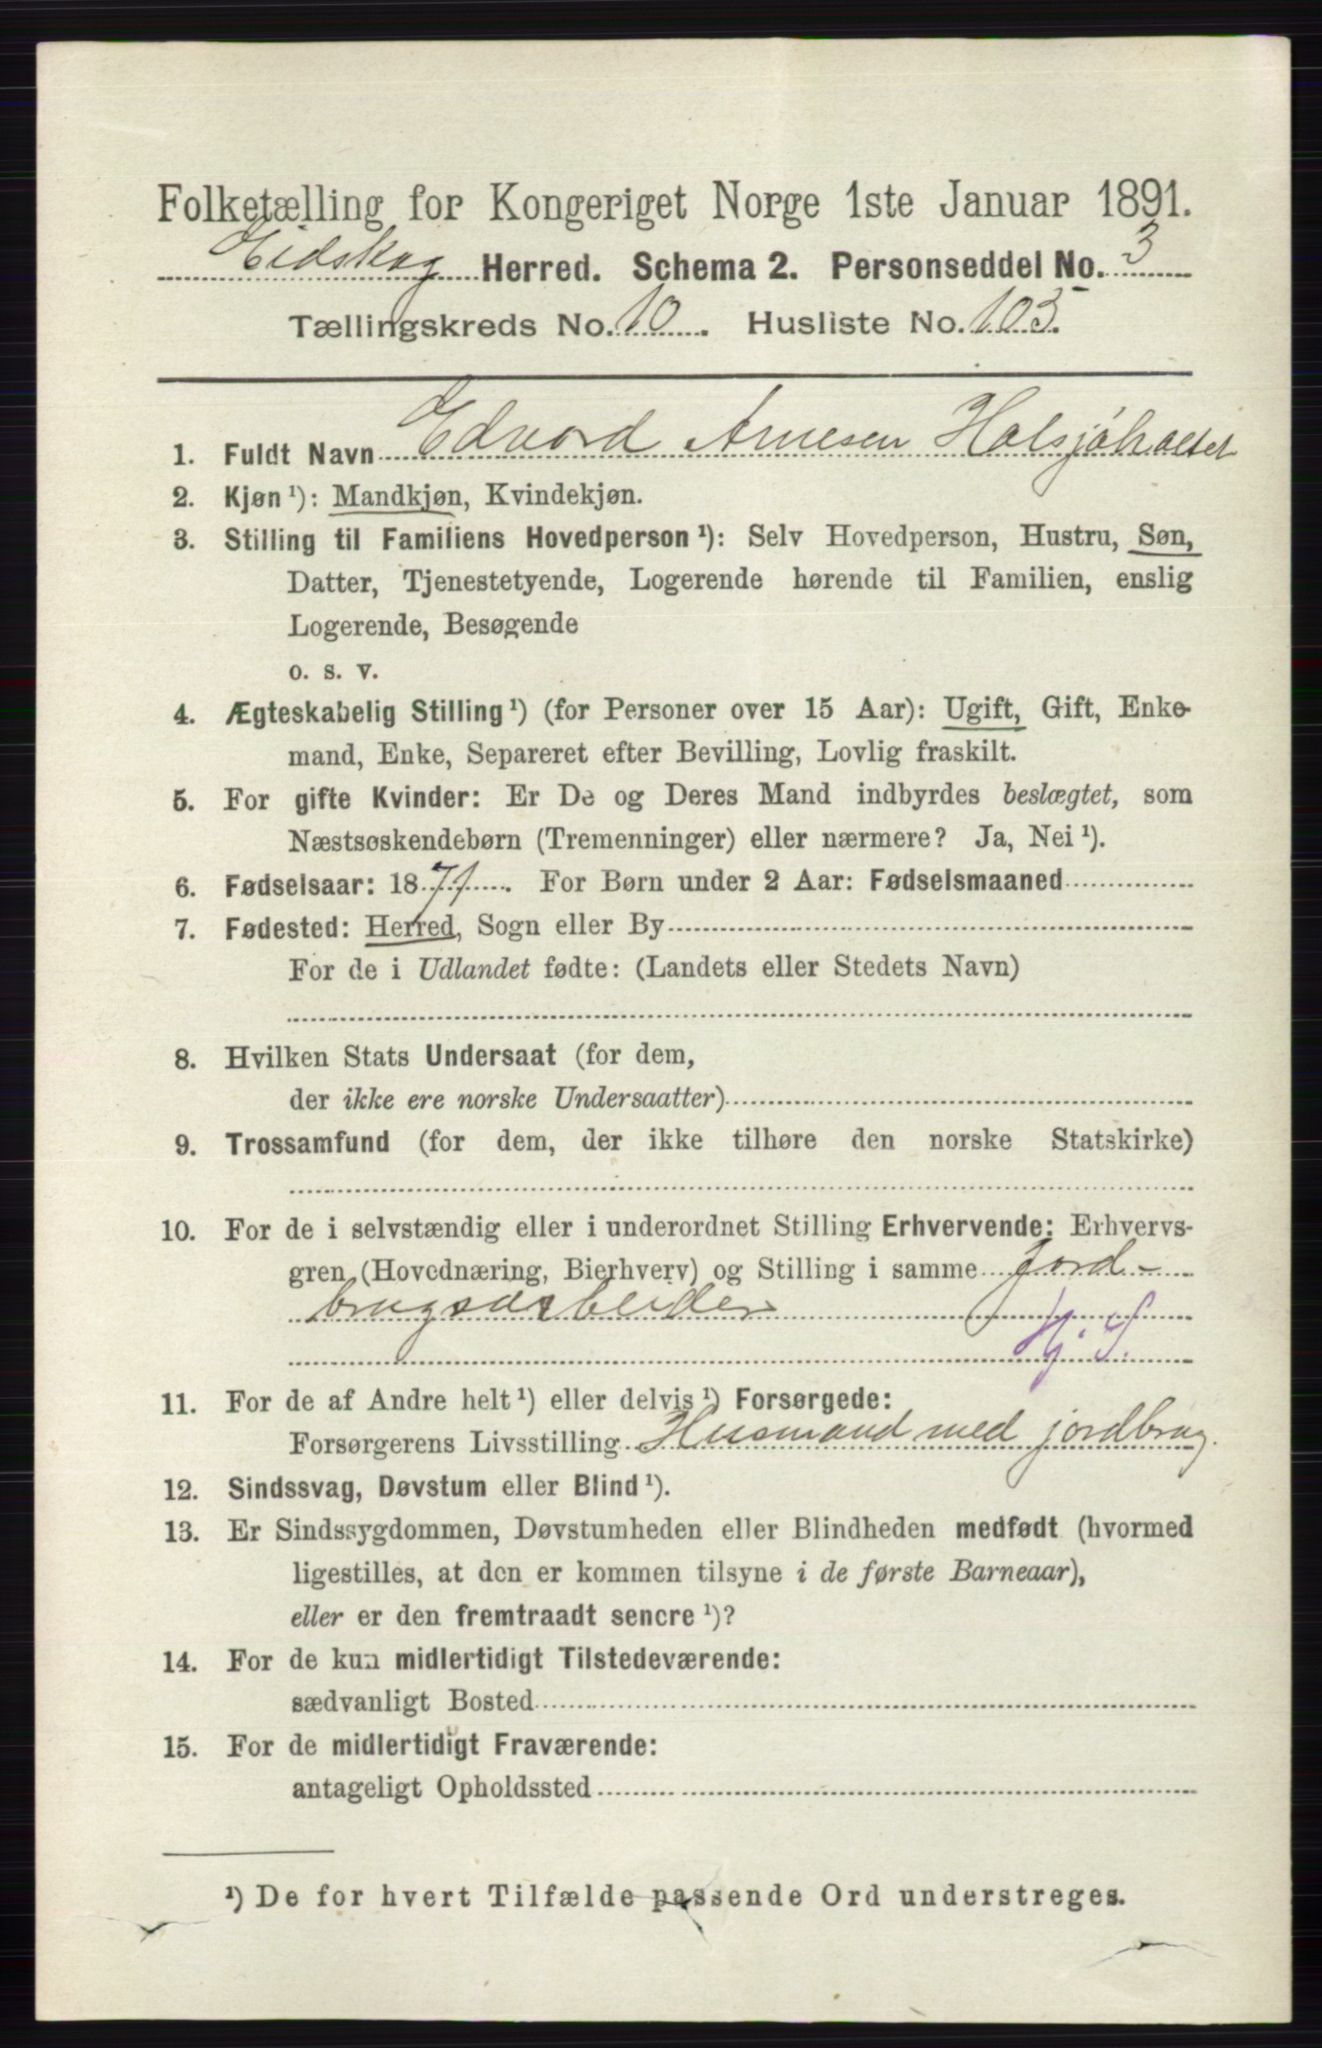 Folketælling for Kongeriget Norge 1ste Januar 1891.
Eidskog Herred. Schema 2. Personseddel No. 3
Tællingskreds No. 10. Husliste No. 103.
1. Fuldt Navn Edvard Arnesen Halsjøholtet
2. Kjøn ¹): Mandkjøn, Kvindekjøn.
3. Stilling til Familiens Hovedperson ¹): Selv Hovedperson, Hustru, Søn,
Datter, Tjenestetyende, Logerende hørende til Familien, enslig
Logerende, Besøgende
o. s. v.
4. Ægteskabelig Stilling ¹) (for Personer over 15 Aar): Ugift, Gift, Enke-
mand, Enke, Separeret efter Bevilling, Lovlig fraskilt.
5. For gifte Kvinder: Er De og Deres Mand indbyrdes beslægtet, som
Næstsøskendebørn (Tremenninger) eller nærmere? Ja, Nei ¹).
6. Fødselsaar: 1871. For Børn under 2 Aar: Fødselsmaaned
7. Fødested: Herred, Sogn eller By
For de i Udlandet fødte: (Landets eller Stedets Navn)
8. Hvilken Stats Undersaat (for dem,
der ikke ere norske Undersaatter)
9. Trossamfund (for dem, der ikke tilhøre den norske Statskirke)
10. For de i selvstændig eller i underordnet Stilling Erhvervende: Erhvervs-
gren (Hovednæring, Bierhverv) og Stilling i samme Jord-
brugsarbeider
Hj. S.
11. For de af Andre helt ¹) eller delvis ¹) Forsørgede:
Forsørgerens Livsstilling Husmand med jordbrug.
12. Sindssvag, Døvstum eller Blind ¹).
13. Er Sindssygdommen, Døvstumheden eller Blindheden medfødt (hvormed
ligestilles, at den er kommen tilsyne i de første Barneaar),
eller er den fremtraadt senere ¹)?
14. For de kun midlertidigt Tilstedeværende:
sædvanligt Bosted
15. For de midlertidigt Fraværende:
antageligt Opholdssted
¹) De for hvert Tilfælde passende Ord understreges.